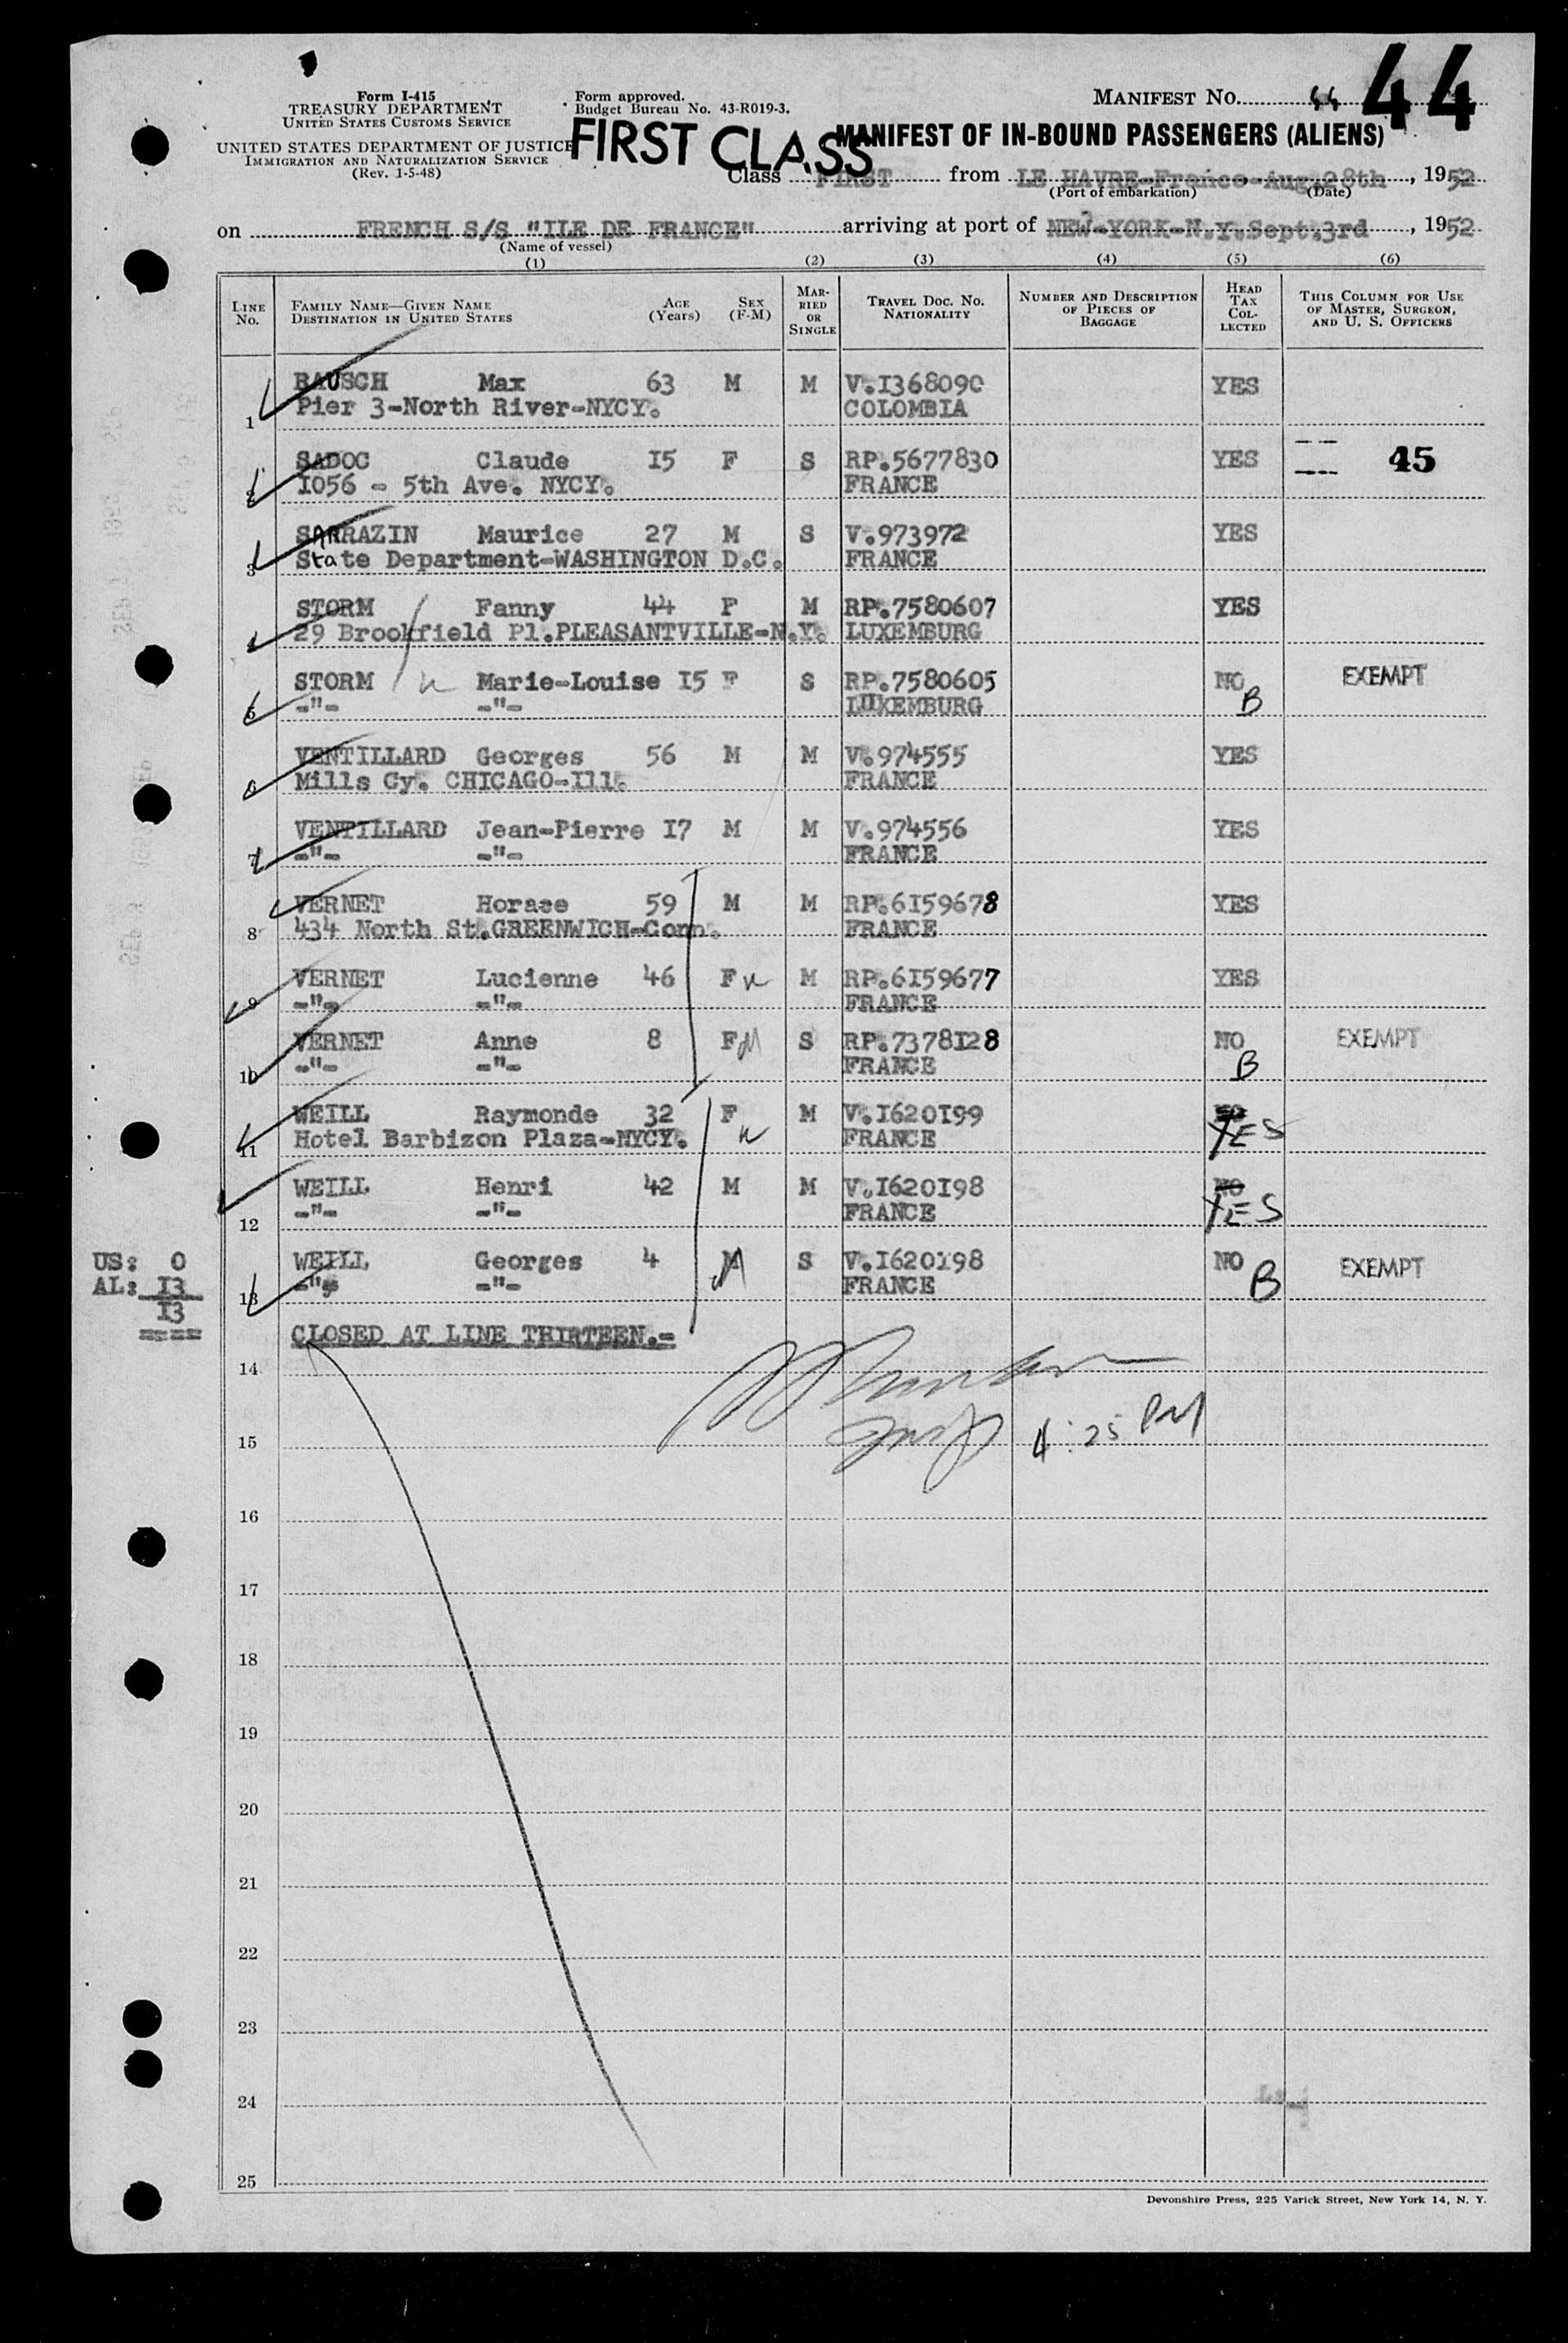 44
Form I-415
TREASURY DEPARTMENT
UNITED STATES CUSTOMS SERVICE
UNITED STATES DEPARTMENT OF JUSTICE
IMMIGRATION AND NATURALIZATION SERVICE
(Rev. 1-5-48)
Form approved.
Budget Bureau No. 43-R019-3.
MANIFEST No. 44
FIRST CLASS
MANIFEST OF IN-BOUND PASSENGERS (ALIENS)
Class FIRST from LE HAVRE-France-Aug.28th, 1952
(Port of embarkation) (Date)
on FRENCH S/S "ILE DE FRANCE" arriving at port of NEW-YORK-N.Y.Sept.3rd, 1952
(Name of vessel)
(1) (2) (3) (4) (5) (6)
LINE No. FAMILY NAME—GIVEN NAME DESTINATION IN UNITED STATES AGE (Years) SEX (F-M) MARRIED OR SINGLE TRAVEL DOC. NO. NATIONALITY NUMBER AND DESCRIPTION OF PIECES OF BAGGAGE HEAD TAX COLLECTED THIS COLUMN FOR USE OF MASTER, SURGEON, AND U. S. OFFICERS
RAUSCH Max 63 M M V.I368090 YES
1 Pier 3-North River-NYCY. COLOMBIA
SADOC Claude I5 F S RP.5677830 YES 45
2 I056 - 5th Ave. NYCY. FRANCE
SARRAZIN Maurice 27 M S V.973972 YES
3 State Department-WASHINGTON D.C. FRANCE
STORM Fanny 44 F M RP.7580607 YES
4 29 Brookfield Pl.PLEASANTVILLE-N.Y. LUXEMBURG
STORM Marie-Louise I5 F S RP.7580605 NO EXEMPT
5 -"- -"- LUXEMBURG B
VENTILLARD Georges 56 M M V.974555 YES
6 Mills Cy. CHICAGO-Ill. FRANCE
VENTILLARD Jean-Pierre I7 M M V.974556 YES
7 -"- -"- FRANCE
VERNET Horace 59 M M RP.6I59678 YES
8 434 North St.GREENWICH-Conn. FRANCE
VERNET Lucienne 46 F M RP.6I59677 YES
9 -"- -"- FRANCE
VERNET Anne 8 F S RP.7378I28 NO EXEMPT
10 -"- -"- FRANCE B
WEILL Raymonde 32 F M V.I620I99 NO
11 Hotel Barbizon Plaza-NYCY. FRANCE YES
WEILL Henri 42 M M V.I620I98 NO
12 -"- -"- FRANCE YES
US: 0 WEILL Georges 4 M S V.I620I98 NO EXEMPT
AL: I3 13 -"- -"- FRANCE B
I3
CLOSED AT LINE THIRTEEN.-
14
15 4:25 PM
16
17
18
19
20
21
22
23
24
25
Devonshire Press, 225 Varick Street, New York 14, N. Y.